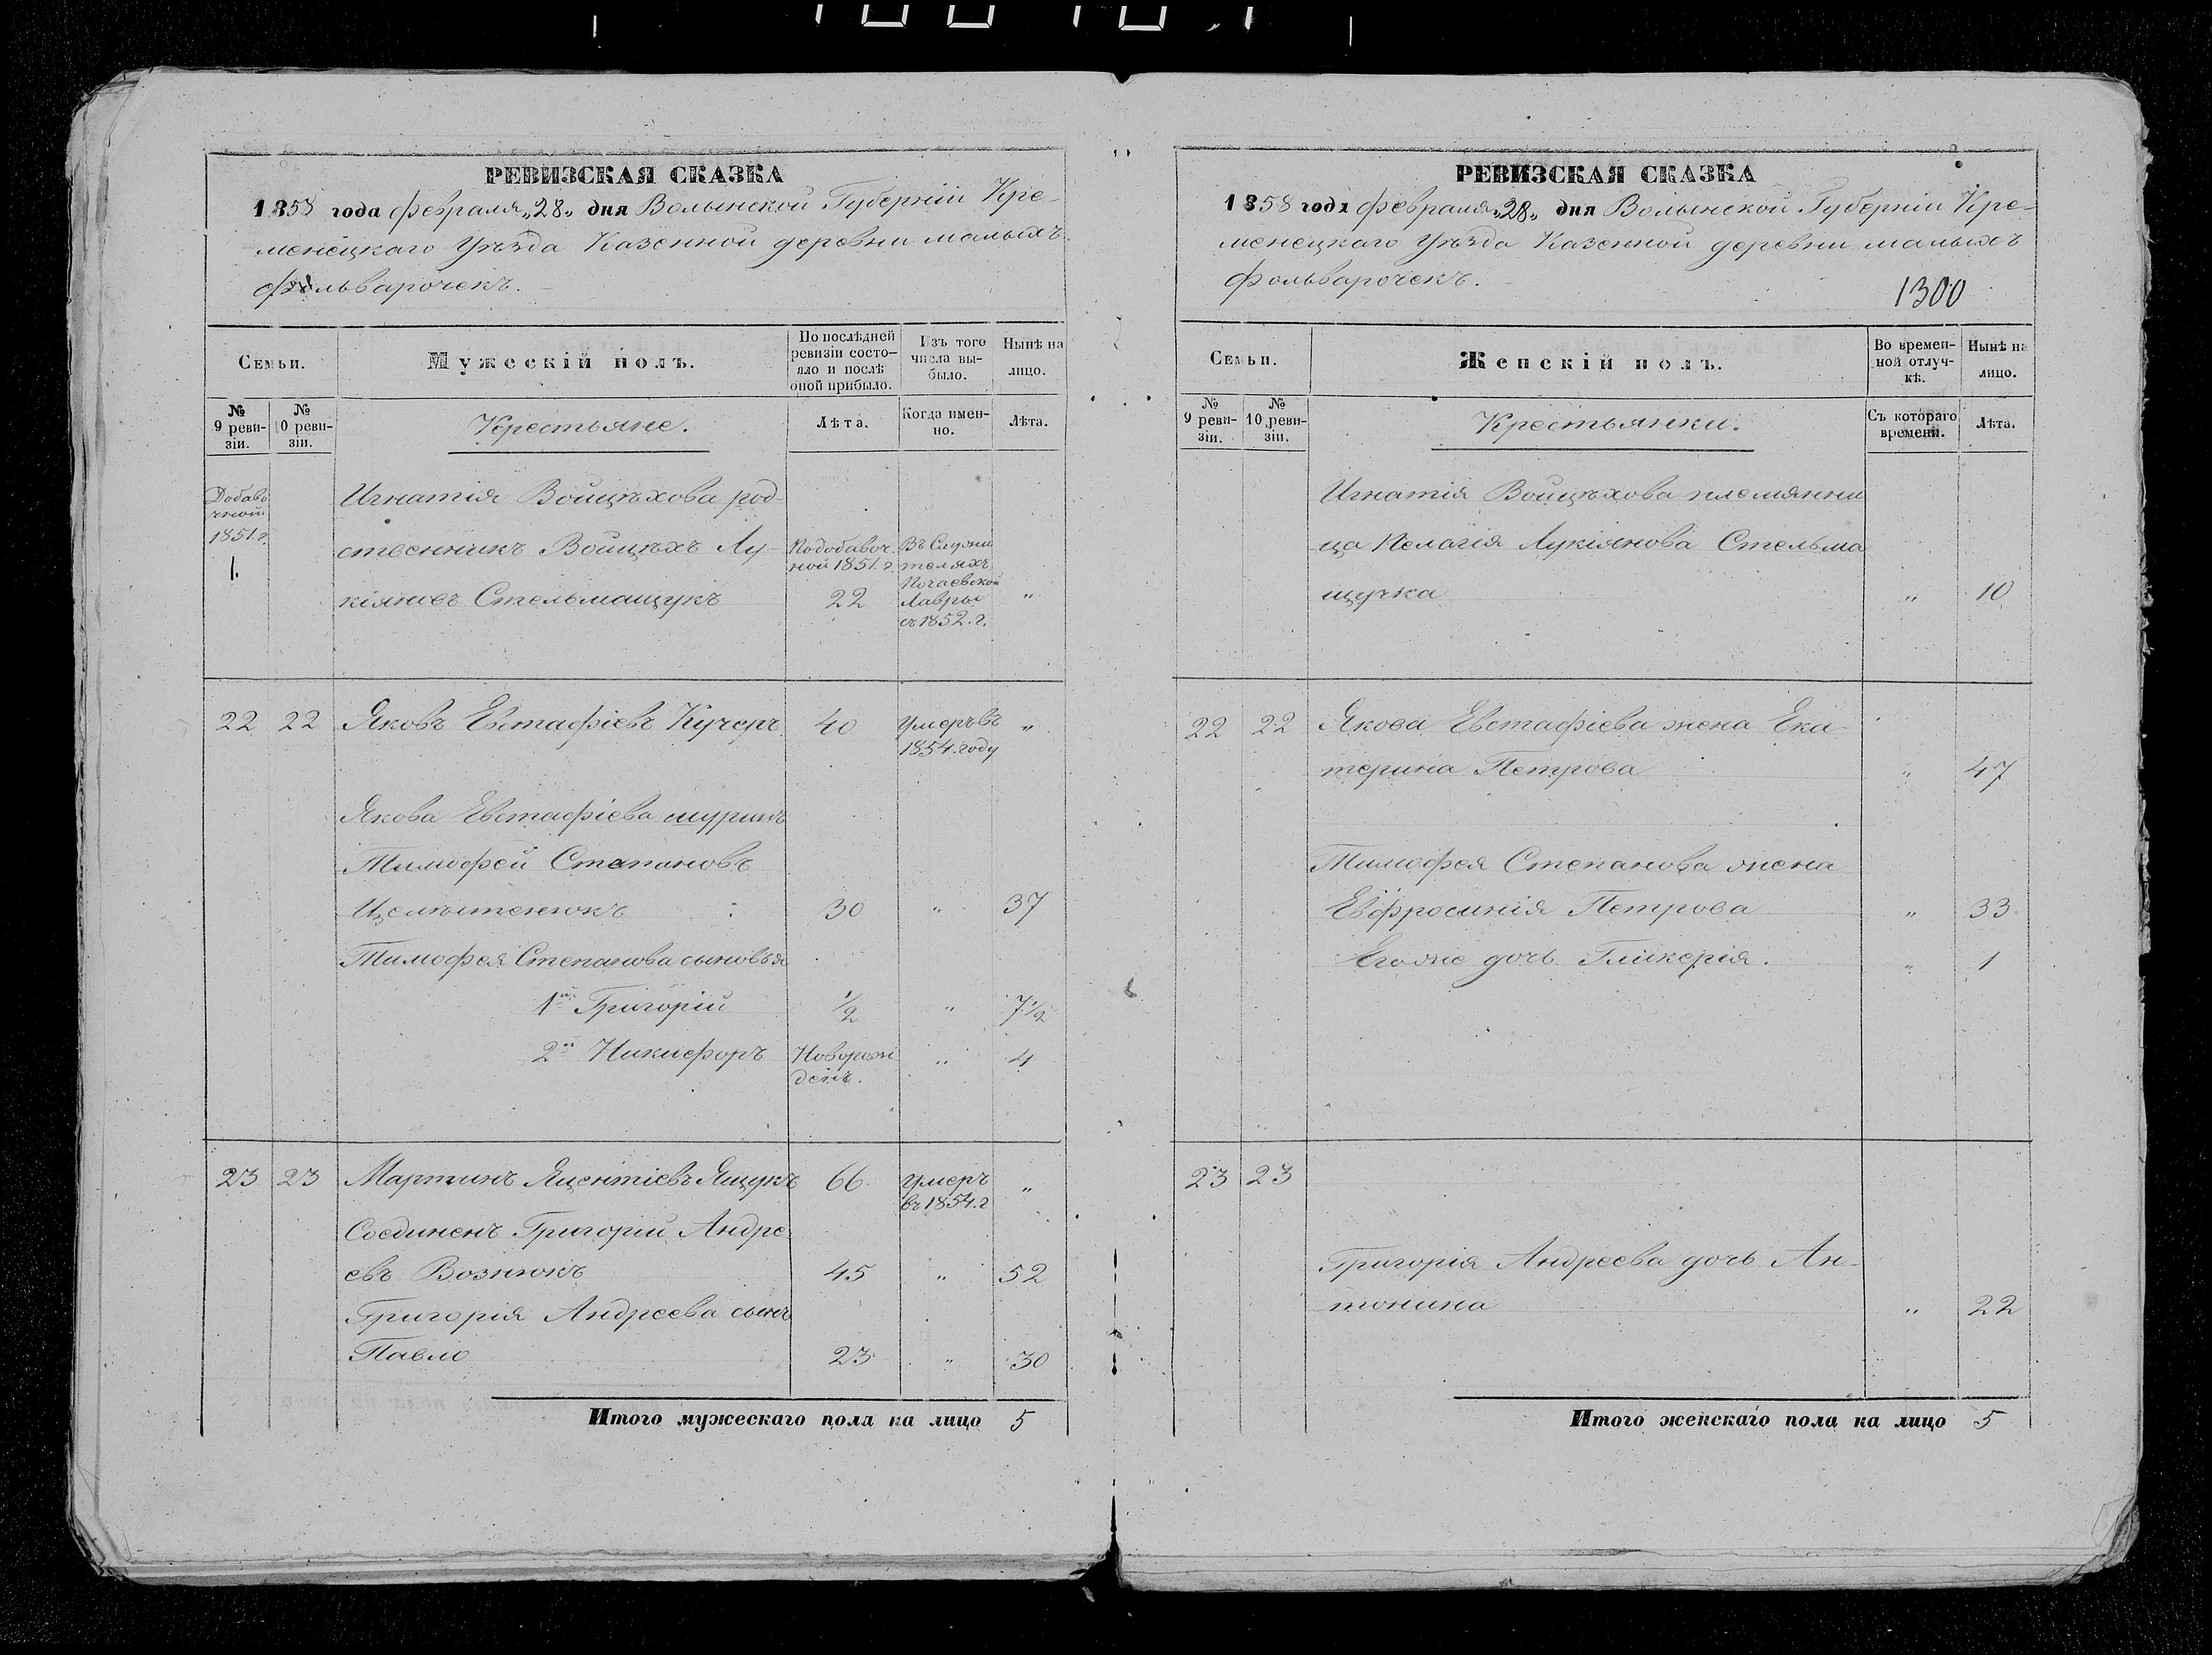 РЕВИЗСКАЯ СКАЗКА
1858 года февраля „28„ дня Волынской Губерніи Кре-
менецкаго Уѣзда Казенной деревни малыхъ
фольварочекъ.
Семьи.
Мужескій полъ.
По послѣдней ревизіи состо-яло и послѣ оной прибыло.
Изъ того числа вы-было.
Нынѣ на лицо.
№ 9 реви-зіи.
№ 10 реви-зіи.
Крестьяне.
Лѣта.
Когда имен-но.
Лѣта.
Добаво
чной
1851 г.
1.
Игнатія Войцѣхова род-
ственникъ Войцѣхъ Лу-
кіяновъ Стельмащукъ
По добавоч.
ной 1851. г.
22
Въ Служи
теляхъ
Почаевской
Лавры
съ 1852. г.
„
22 22 Яковъ Евстафіевъ Кучеръ 40 Умеръ въ „
1854. году
Якова Евстафіева шуринъ
Тимофей Степановъ
30 „ 37
Тимофея Степанова сыновья
1й Григорій ½ „ 7½
2й Никифоръ Новорож „ 4
денъ.
23 23 Мартинъ Яцентіевъ Яцукъ 66 Умеръ „
въ 1854. г
Соединенъ Григорій Андре
евъ Вознюкъ 45 „ 52
Григорія Андреева сынъ
Павло 23 „ 30
Итого мужескаго пола на лицо 5
РЕВИЗСКАЯ СКАЗКА
1858 года февраля „28„ дня Волынской Губерніи Кре-
менецкаго Уѣзда Казенной деревни малыхъ
фольварочекъ.
1300
Семьи.
Женскій полъ.
Во времен-ной отлуч-кѣ.
Нынѣ на лицо.
№ 9 реви-зіи.
№ 10 реви-зіи.
Крестьянки.
Съ котораго времени.
Лѣта.
Игнатія Войцѣхова племянни
ца Пелагія Лукіянова Стельма
щучка „ 10
22 22 Якова Евстафіева жена Ека-
терина Петрова „ 47
Тимофея Степанова жена
Евфросинія Петрова „ 33
Его же дочь Гликерія. „ 1
23 23
Григорія Андреева дочь Ан-
тонина „ 22
Итого женскаго пола на лицо 5